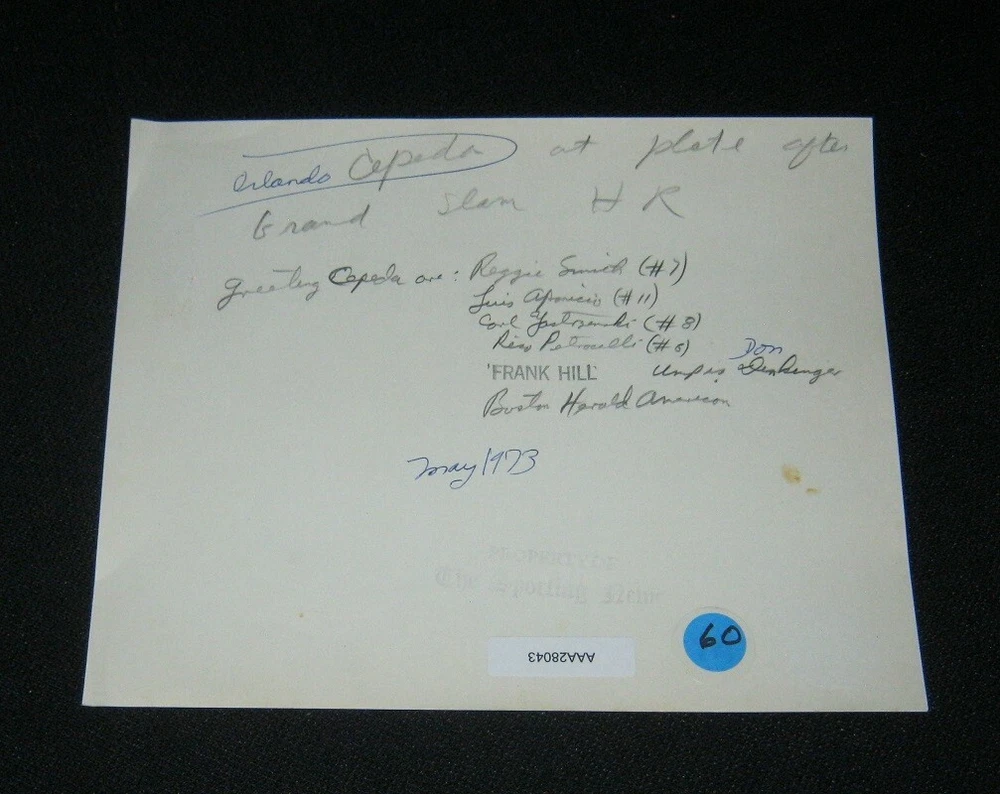 Orlando Cepeda at plate after
Grand Slam HR
Greeting Cepeda are: Reggie Smith (#7)
Luis Aparicio (#11)
Carl Yastrzemski (#8)
Rico Petrocelli (#6)
Don
'FRANK HILL' Ump is Denkinger
Boston Herald American
May 1973
PROPERTY OF
The Sporting News
AAA28043
60